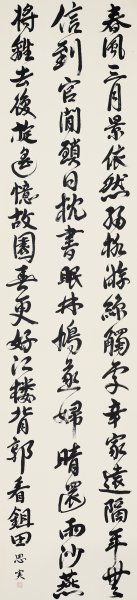 春風三月景依然弱柳游絲觸處牽家遠隔年無
信到官閒鎮日枕書眠林鳩逐婦晴還雨沙燕
將雛去復旋遙憶故園春更好江樓背郭看鉏田
思実